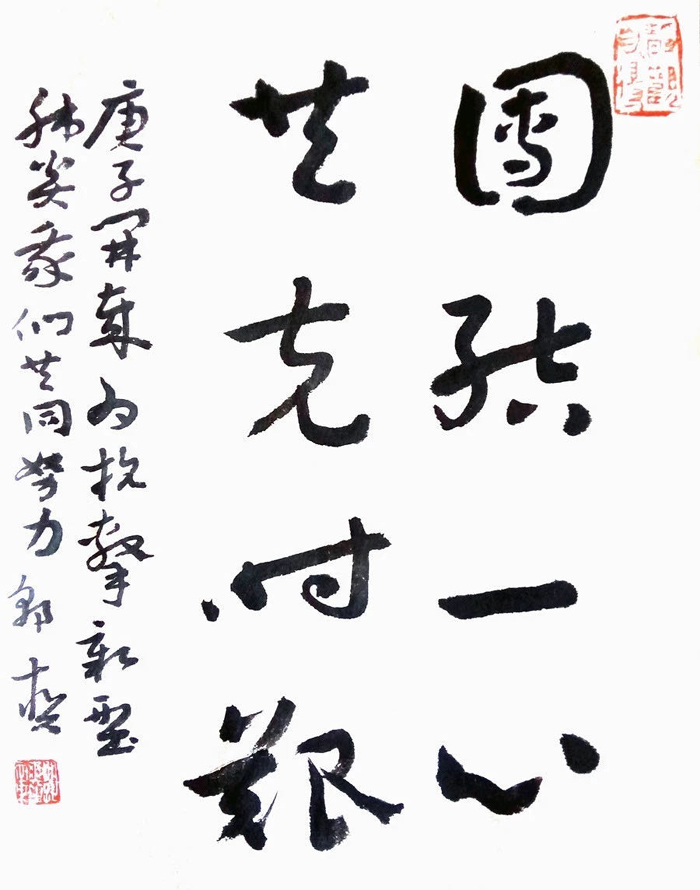 團結一心
共克时艱
庚子開为抗擊新型
肺炎我们共同努力 郭